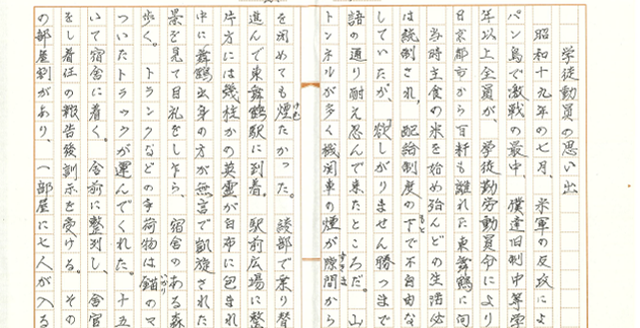 学徒動員の思い出
昭和十九年の七月、米軍の反攻によ
パン島で激戦の最中、僕達旧制中等学
年以上全員が、学徒勤労動員令により
日京都市から百粁も離れた東舞鶴に向
当時主食の米を始め殆んどの生活必
は統制され、配給制度の下もとで不自由な
していたが、欲しがりません勝つまで
語の通り耐え忍んで来たところだ。山
トンネルが多く機関車の煙が隙間すきまから
を閉めても煙けむたかった。綾部で乗り替
進んで東舞鶴駅に到着。駅前広場に整
片方には幾柱かの英霊が白布に包まれ
中に舞鶴出身の方が無言で凱旋された
景を見て目礼をし乍ら、宿舎のある森
歩く。トランクなどの手荷物は錨いかりのマ
ついたトラックが運んでくれた。十五
いて宿舎に着く。舎前に整列し、舎官
をし着任の報告後訓示を受ける。その
の部屋割があり、一部屋に七人が入る